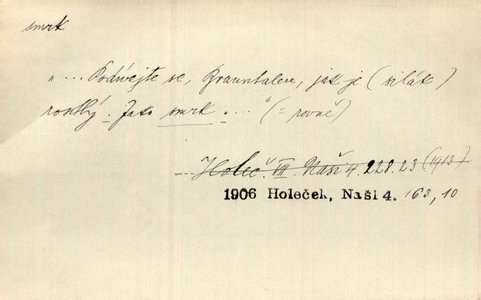 smrk
„... Podívejte se, Brauntalere, jak je (silák)
rostlý. Jako smrk ...." (= rovný)
Holeč. VII. Naši 4. 228.23 (1913)
1906 Holeček, Naši 4. 163, 10